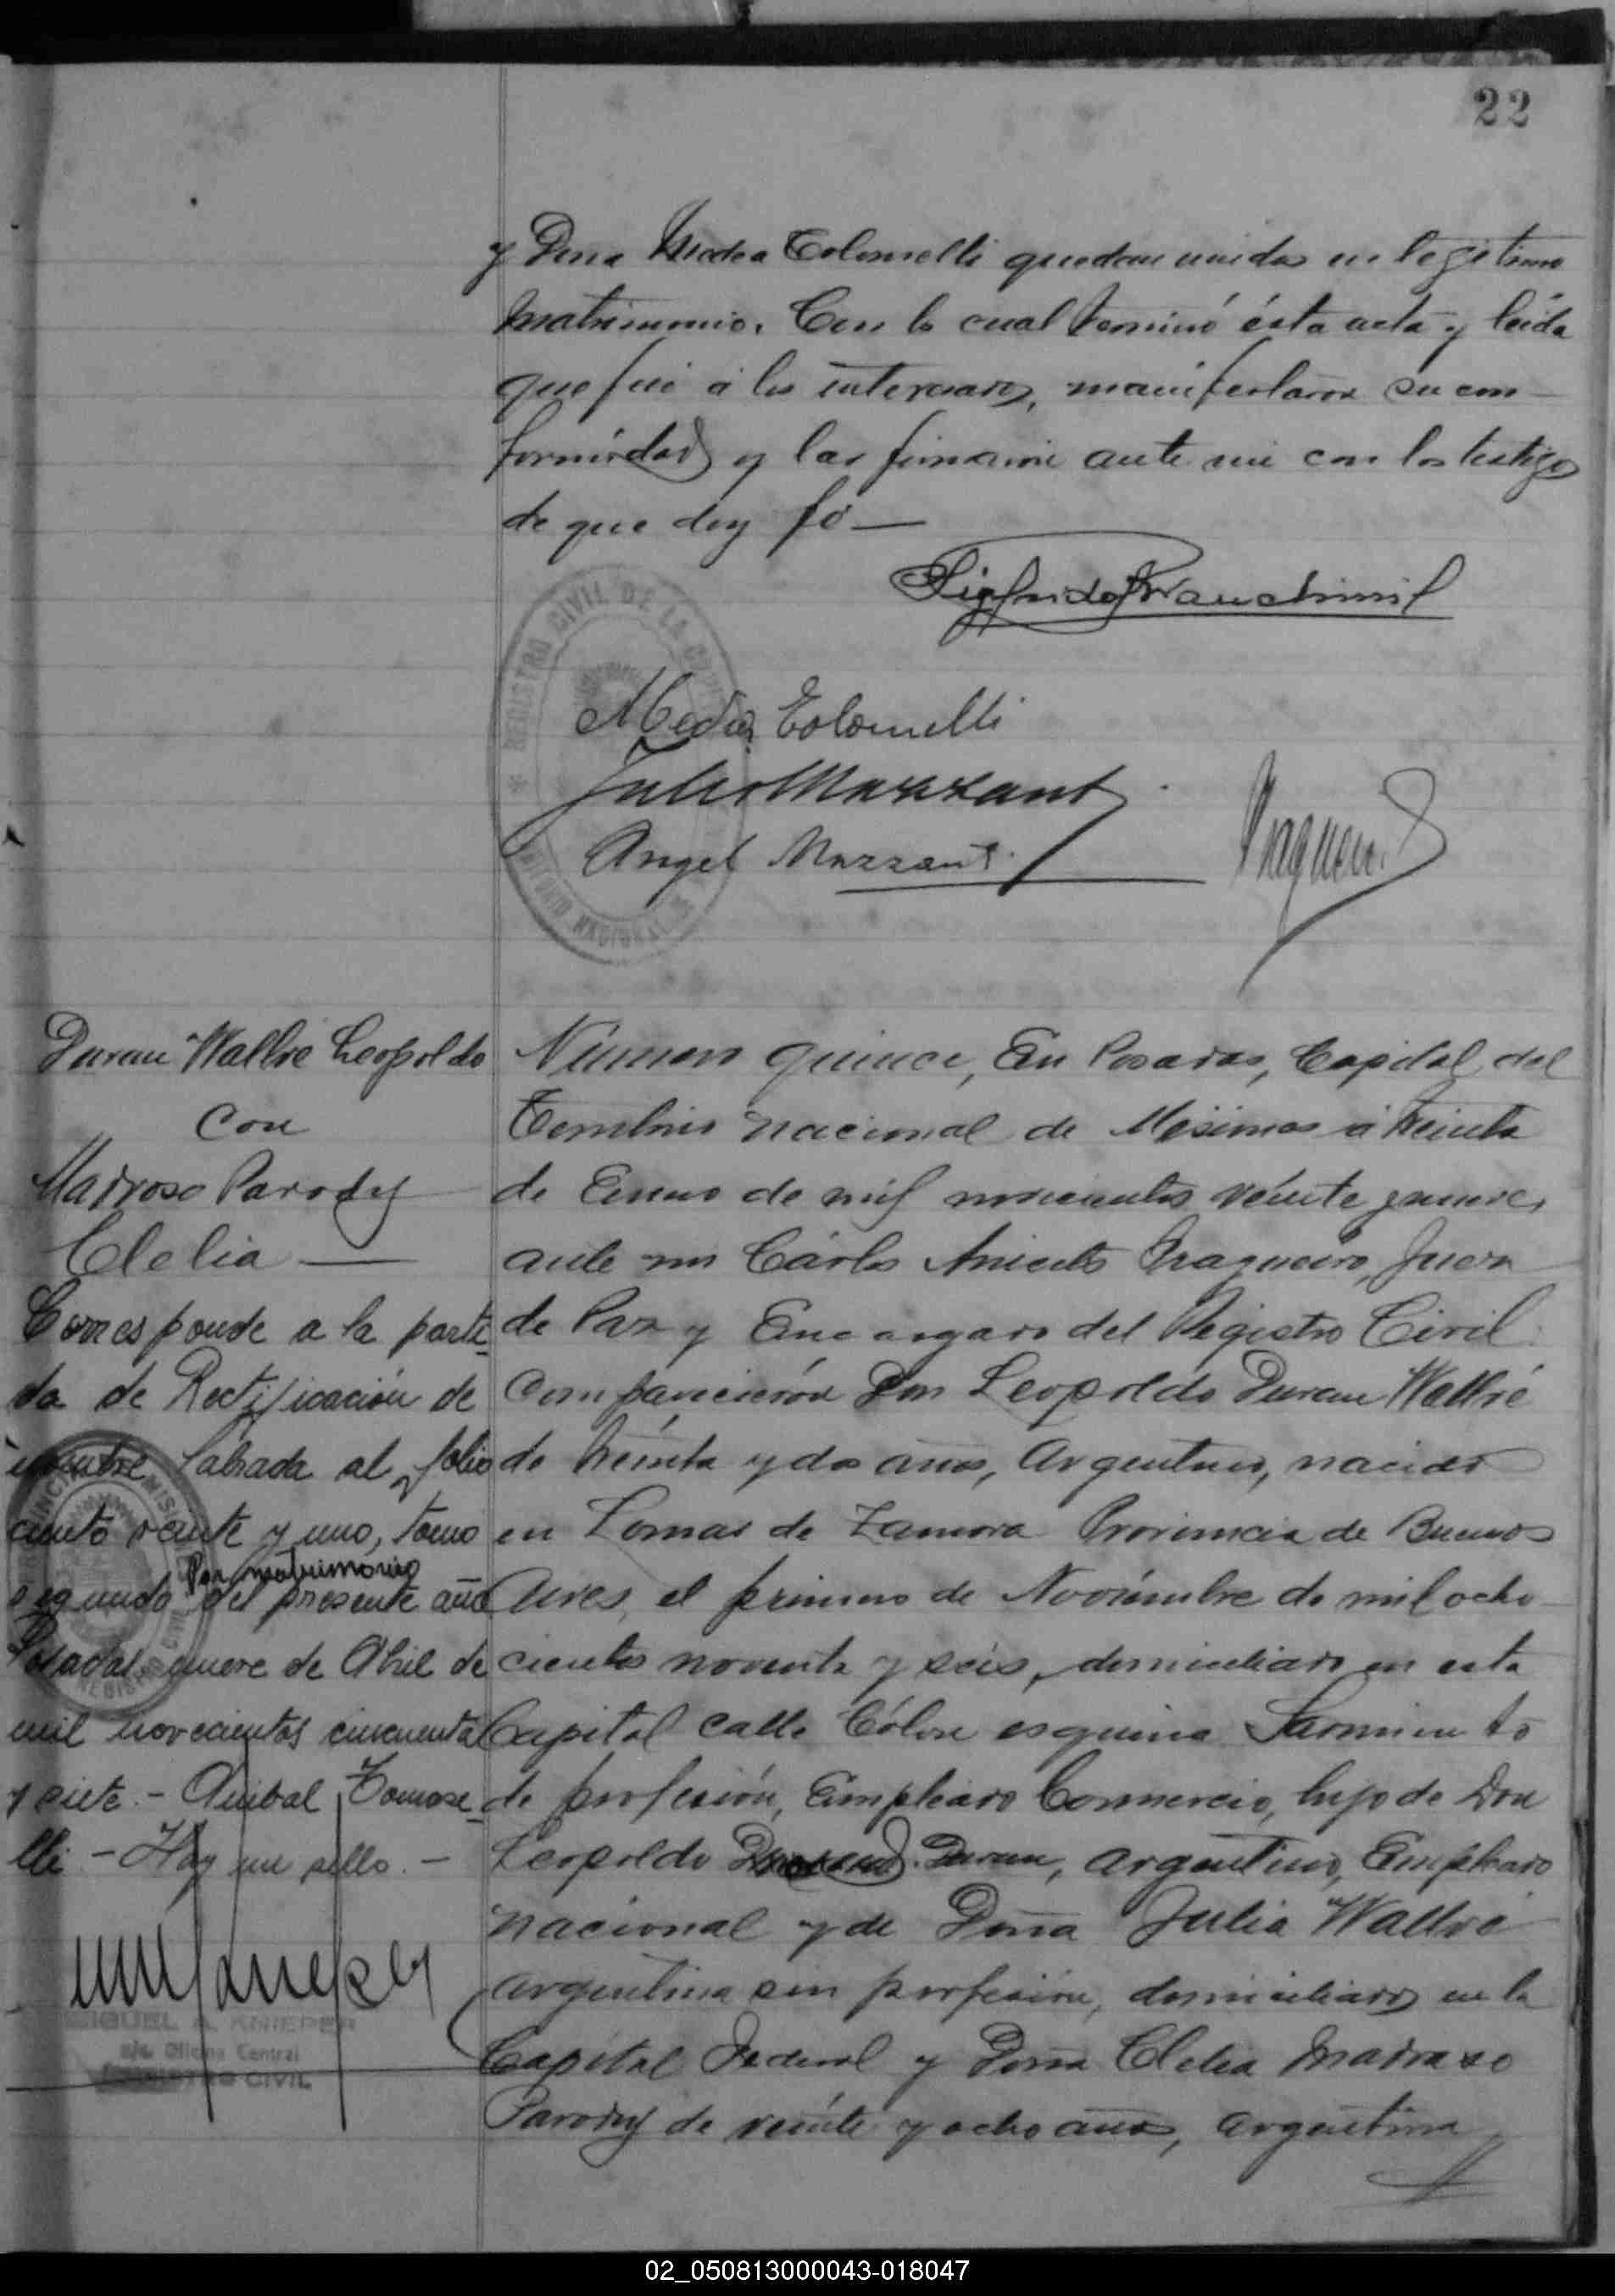 22
y Dona Medea Colomelli quedan unidos en legitimo
matrimonio. Con lo cual terminó ésta acta y leida
que fué á los interesados, manifestaron su con-
formidad y las firmaron ante mi con los testigos
de que doy fé —
REGISTRO CIVIL DE LA
Medea Colomelli
Julio Mazzanti
Angel Mazzanti
Duran Wallré Leopoldo
con
Madroso Parody
Clelia —
Corresponde a la parti-
da de Rectificación de
labrada al folio
ciento veinte y uno, tomo
Por matrimonio
segundo del presente año
Posadas, nueve de Abril de
mil novecientos cincuenta
y siete. - Anibal Tomase-
lli - Hay un sello. -
MIGUEL A. KNIEPER
a/c Oficina Central
REGISTRO CIVIL
Número quince, En Posadas, Capital del
Territorio nacional de Misiones á treinta
de Enero de mil novecientos veinte y nueve,
ante mi Cárlos Aniceto Fragueiro, Juez
de Paz y Encargado del Registro Civil
comparecierón Don Leopoldo Duran Wallré
de treinta y dos años, Argentino, nacido
en Lomas de Zamora Provincia de Buenos
Aires, el primero de Noviembre de mil ocho-
cientos noventa y seis, domiciliado en esta
Capital calle Cólon esquina Sarmiento
de profesión, Empleado Comercio, hijo de Don
Leopoldo Duran, argentino, Empleado
nacional y de Dona Julia Wallré
argentina sin profesión, domiciliados en la
Capital Federal y Dona Clelia Madroso
Parody de veinte y ocho años, argentina
02_050813000043-018047